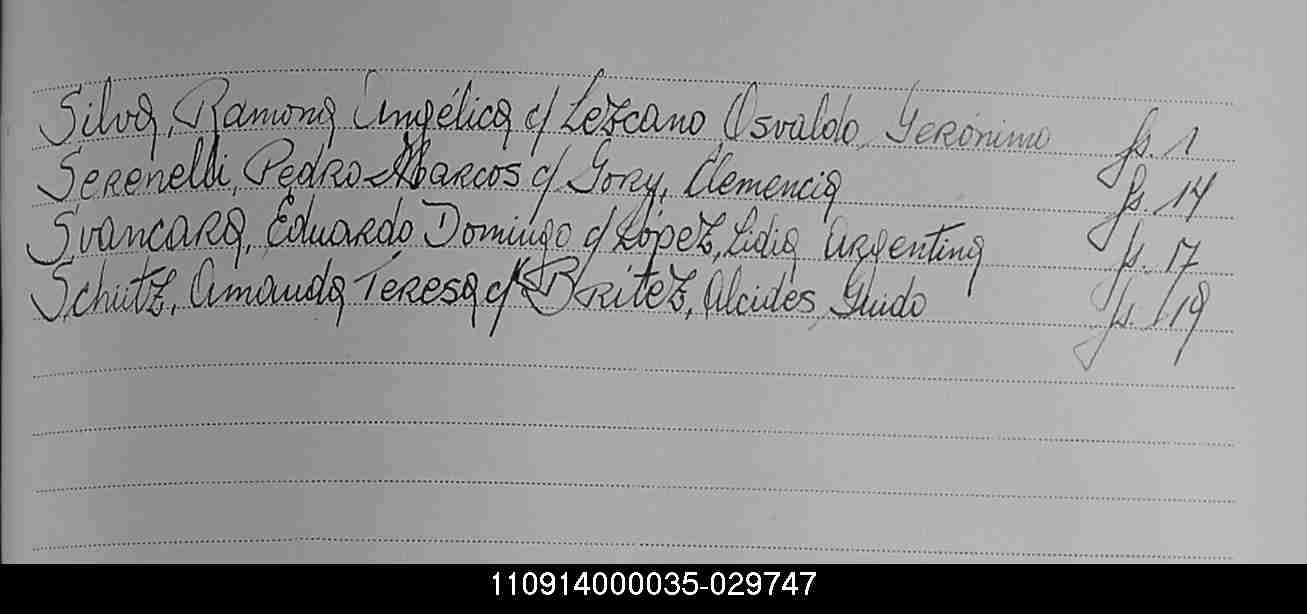 Silva, Ramona Angélica c/ Lezcano, Osvaldo Gerónimo fs. 1
Serenelli, Pedro Marcos c/ Gory, Clemencia fs. 14
Svancara, Eduardo Domingo c/ López, Lidia Argentina fs. 17
Schutz, Amanda Teresa c/ Britez, Alcides Guido fs. 19
110914000035-029747